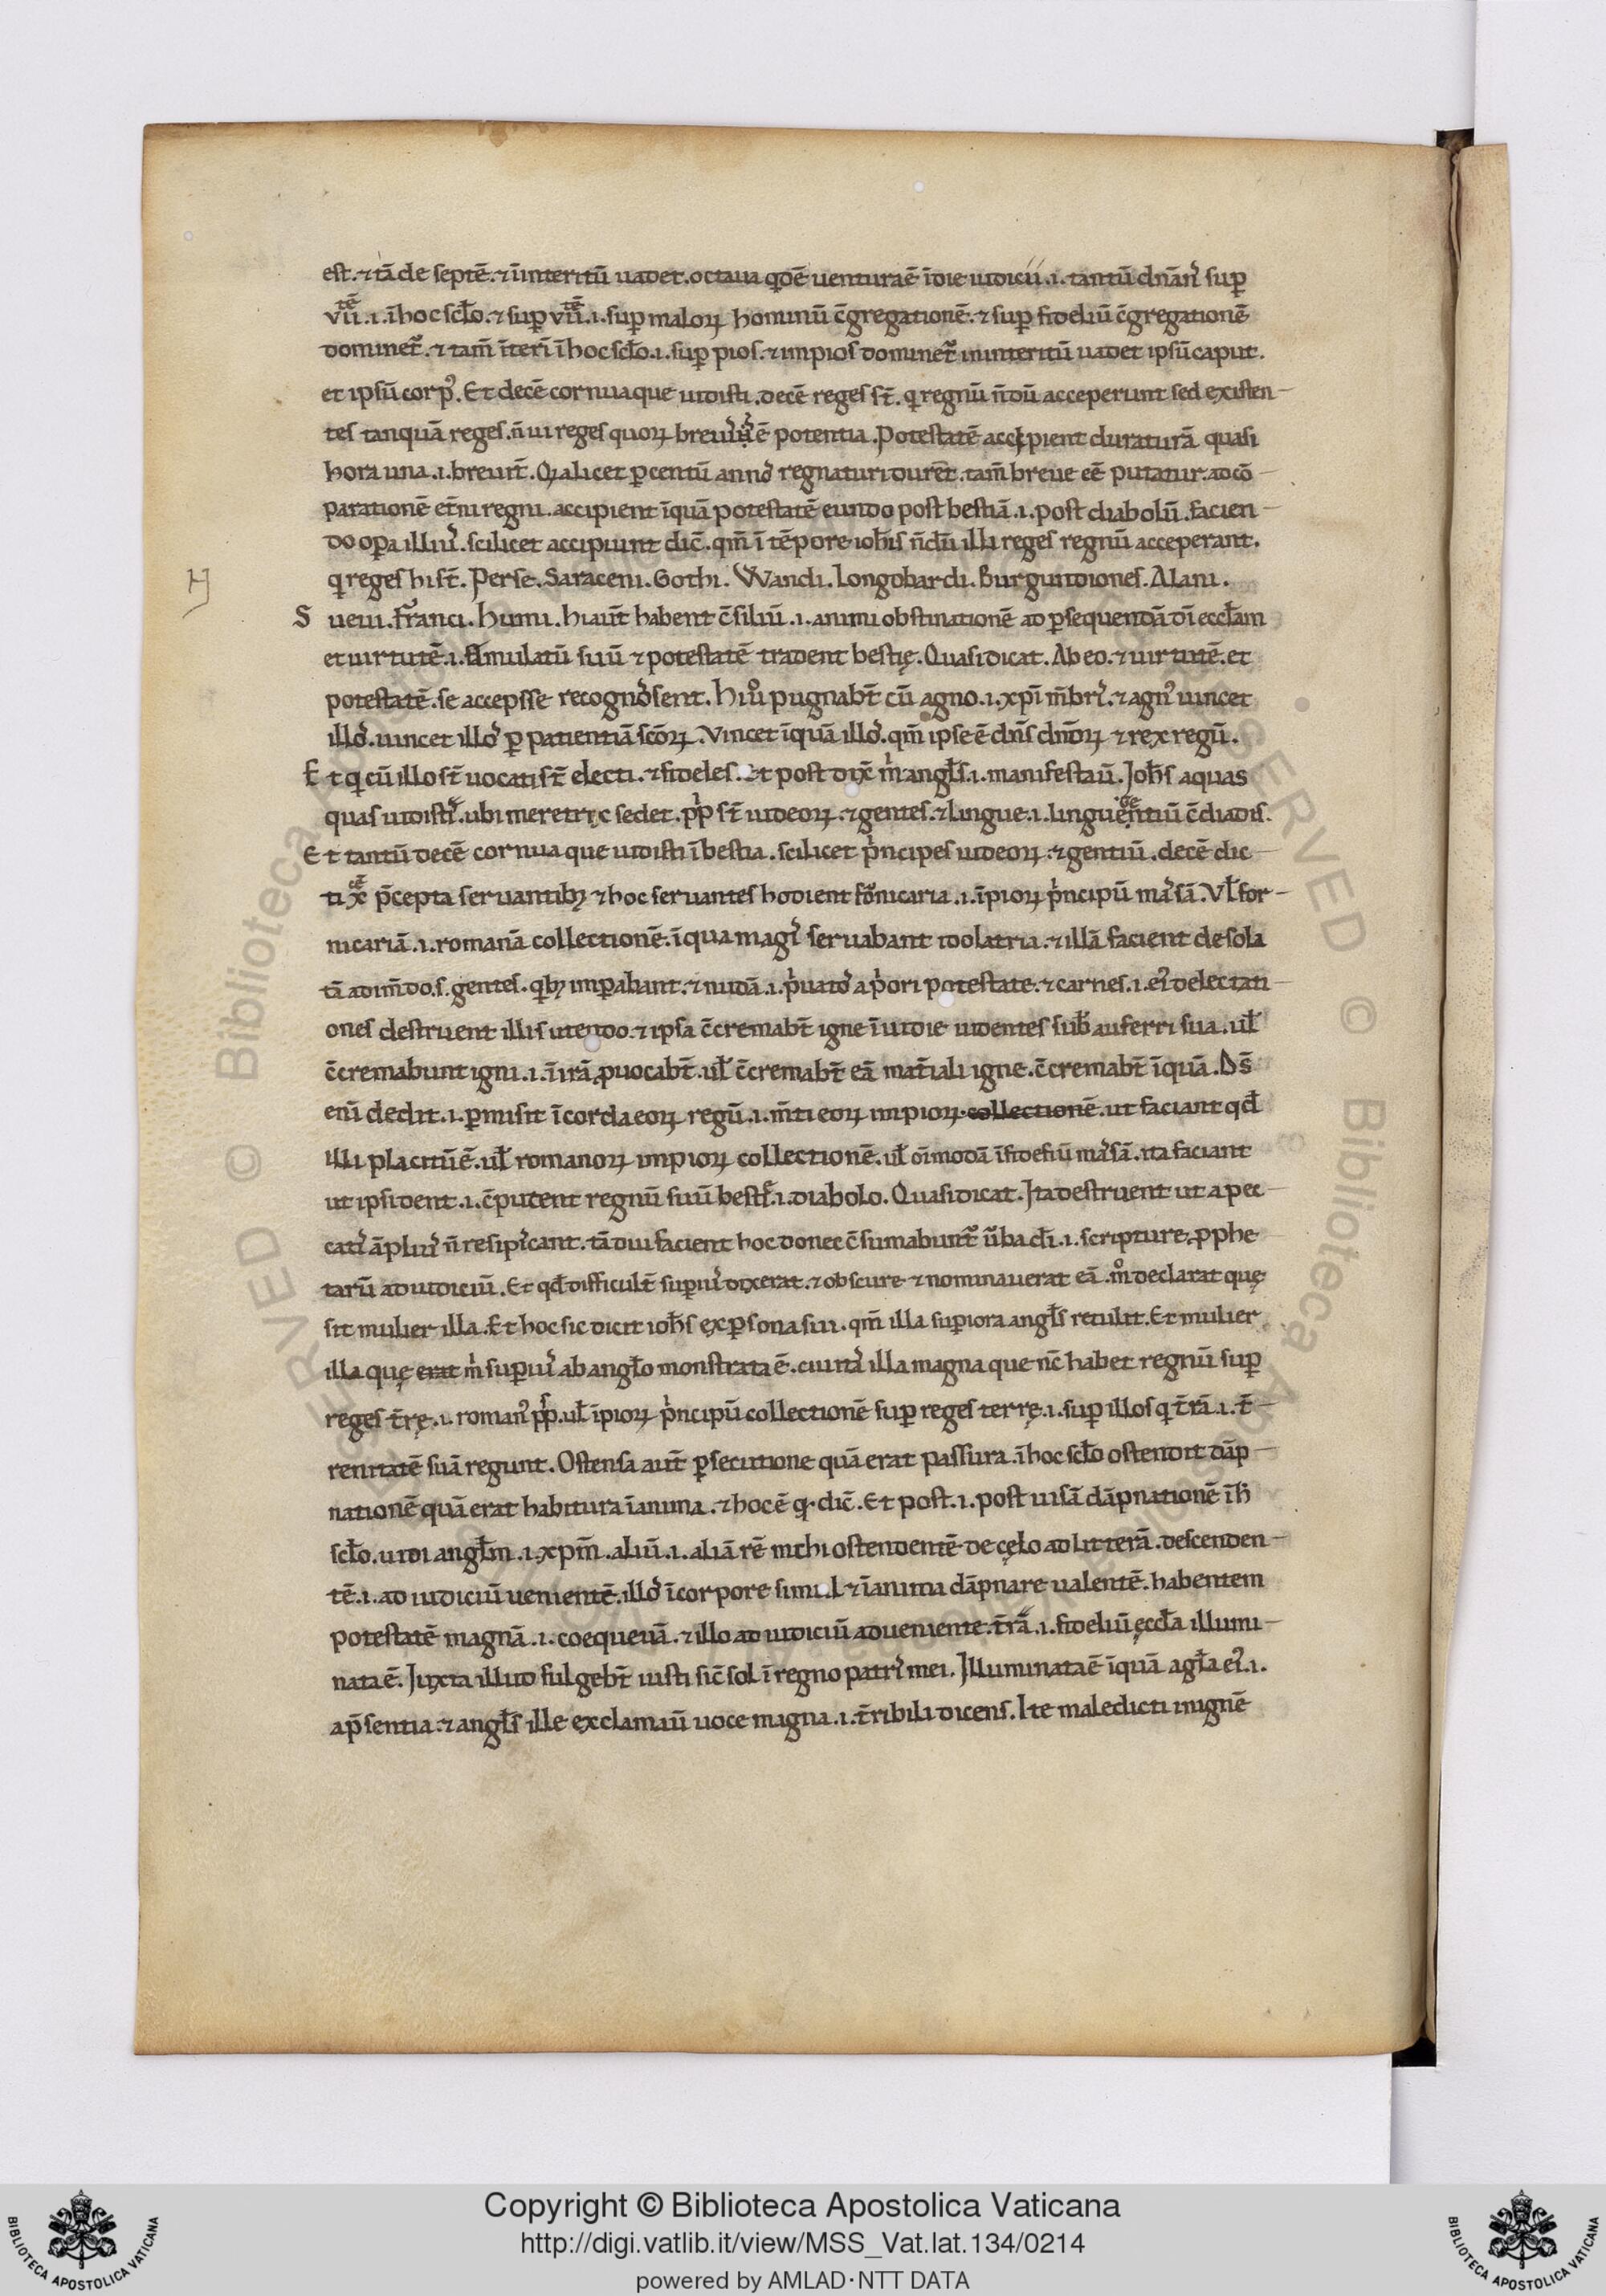 est. ⁊ tā de septē. ⁊ īinteritū uadet. octaua qdē uentura ē īdie iudicii .i. tantū dnāns sup
VIItē .i. īhoc sclo. ⁊ sup VIItē .i. sup maloꝝ hominū c̄gregationē. ⁊ sup fideliū c̄gregationē
dominet. ⁊ tam̄ īterī īhoc sclo .i. sup pios. ⁊ impios dominet in interitū uadet ipsū caput.
et ipsū corp᾽. Et decē cornua que uidisti. decē reges st̄. q regnū n̄dū acceperunt sed existen-
tes tanquā reges. n̄ ui reges quoꝝ breuis ē potentia. Potestatē accipient duraturā quasi
hora una .i. breuit̄. Qa licet p centū annos regnaturi durēt. tam̄ breue eē putatur. ad cō-
parationē et̄ni regni. accipient īquā potestatē eundo post bestiā .i. post diabolū. facien-
do opa illius. scilicet accipiunt dic̄. qm̄ ī tēpore iohis n̄dū illi reges regnū acceperant.
q reges hi st̄. Perse. Saraceni. Gothi. VVandi. Longobardi. Burgundiones. Alani.
Sueui. Franci. Hunni. hi aut̄ habent c̄siliū .i. animi obstinationē ad psequendā dī ecclam
et uirtutē .i. famulatū suū ⁊ potestatē tradent bestię. Quasi dicat. Ab eo. ⁊ uirtutē. et
potestatē. se accepisse recognosent. Hi uo pugnabt̄ cū agno .i. xpī m̄bris. ⁊ agn᾽ uincet
illos. uincet illos p patientiā scōꝝ. Vincet īquā illos. qm̄ ipse ē dn̄s dn̄oꝝ ⁊ rex regū.
Et q cū illo st̄ uocati st̄ electi. ⁊ fideles. Et post dix̄ m anglś .i. manifestau̅. Johs aquas
quas uidisti. ubi meretrix sedet. ppli st̄ iudeoꝝ. ⁊ gentes. ⁊ lingue .i. linguę gentiū c̄diadis.
Et tantū decē cornua que uidisti ī bestia. scilicet pncipes iudeoꝝ. ⁊ gentiū. decē dic-
ti p̄cepta seruantib; ⁊ hoc seruantes hodient fornicaria .i. īpioꝝ pncipū massā. Vl for-
nicariā .i. romanā collectionē. īqua magis seruabant idolatria. ⁊ illā facient desola
tā adim̄do .s. gentes. qb; impabant. ⁊ nudā .i. puatos a pori potestate. ⁊ carnes .i. ei᾽ delectati-
ones destruent illis utendo. ⁊ ipsa c̄cremabt̄ igne īuidie uidentes sub auferri sua. ul
c̄cremabunt igni .i. ī irā puocabt̄. ul c̄cremabt̄ eā mat̄iali igne. c̄cremabt̄ īquā. Ds̄
enī dedit .i. pmisit īcorda eoꝝ regū .i. m̄ti eoꝝ impioꝝ. collectionē. ut faciant qd
illi placitū ē. ul romanoꝝ impioꝝ collectionē. ul oīmodā īfideliū massā. ita faciant
ut ipsi dent .i. c̄putent regnū suū bestie .i. diabolo. Quasi dicat. Ita destruent ut a pec-
catis āplius n̄ resipiscant. tādiu facient hoc donec c̄sumabunt uba dī .i. scripture, pphe-
tarū ad iudiciū. Et qd difficult̄ supius dixerat. ⁊ obscure ⁊ nominauerat eā. mo declarat quę
sit mulier illa. Et hoc sic dicit iohs ex psona sui. qm̄ illa supiora angls retulit. Et mulier
illa quę erat m supius ab anglo monstrata ē. ciuitas illa magna que nc̄ habet regnū sup
reges t̄rę .i. roman᾽ ppls. ul īpioꝝ pncipū collectionē sup reges terrę .i. sup illos q t̄rā .i. t̄-
renitatē suā regunt. Ostensa aut̄ psecutione quā erat passura. īhoc sclo ostendit dāp-
nationē quā erat habitura īanima. ⁊ hoc ē q dic̄. Et post .i. post uisā dāpnationē īh
sclo. uidi anglm .i. xpm̄. aliū .i. aliā rē michi ostendentē de cęlo ad litterā. descenden-
tē .i. ad iudiciū uenientē. illos īcorpore simul ⁊ īanima dāpnare ualentē. habentem
potestatē magnā .i. coequeuā. ⁊ illo ad iudiciū adueniente. t̄rā .i. fideliū ęccla illumi-
nata ē. Juxta illud fulgebt̄ iusti sic̄ sol ī regno patris mei. Jlluminata ē īquā a gla ei᾽ .i.
a p̄sentia. ⁊ angls ille exclamauit̅ uoce magna .i. t̄ribili dicens. Ite maledicti inignē
Copyright © Biblioteca Apostolica Vaticana
http://digi.vatlib.it/view/MSS_Vat.lat.134/0214
powered by AMLAD·NTT DATA